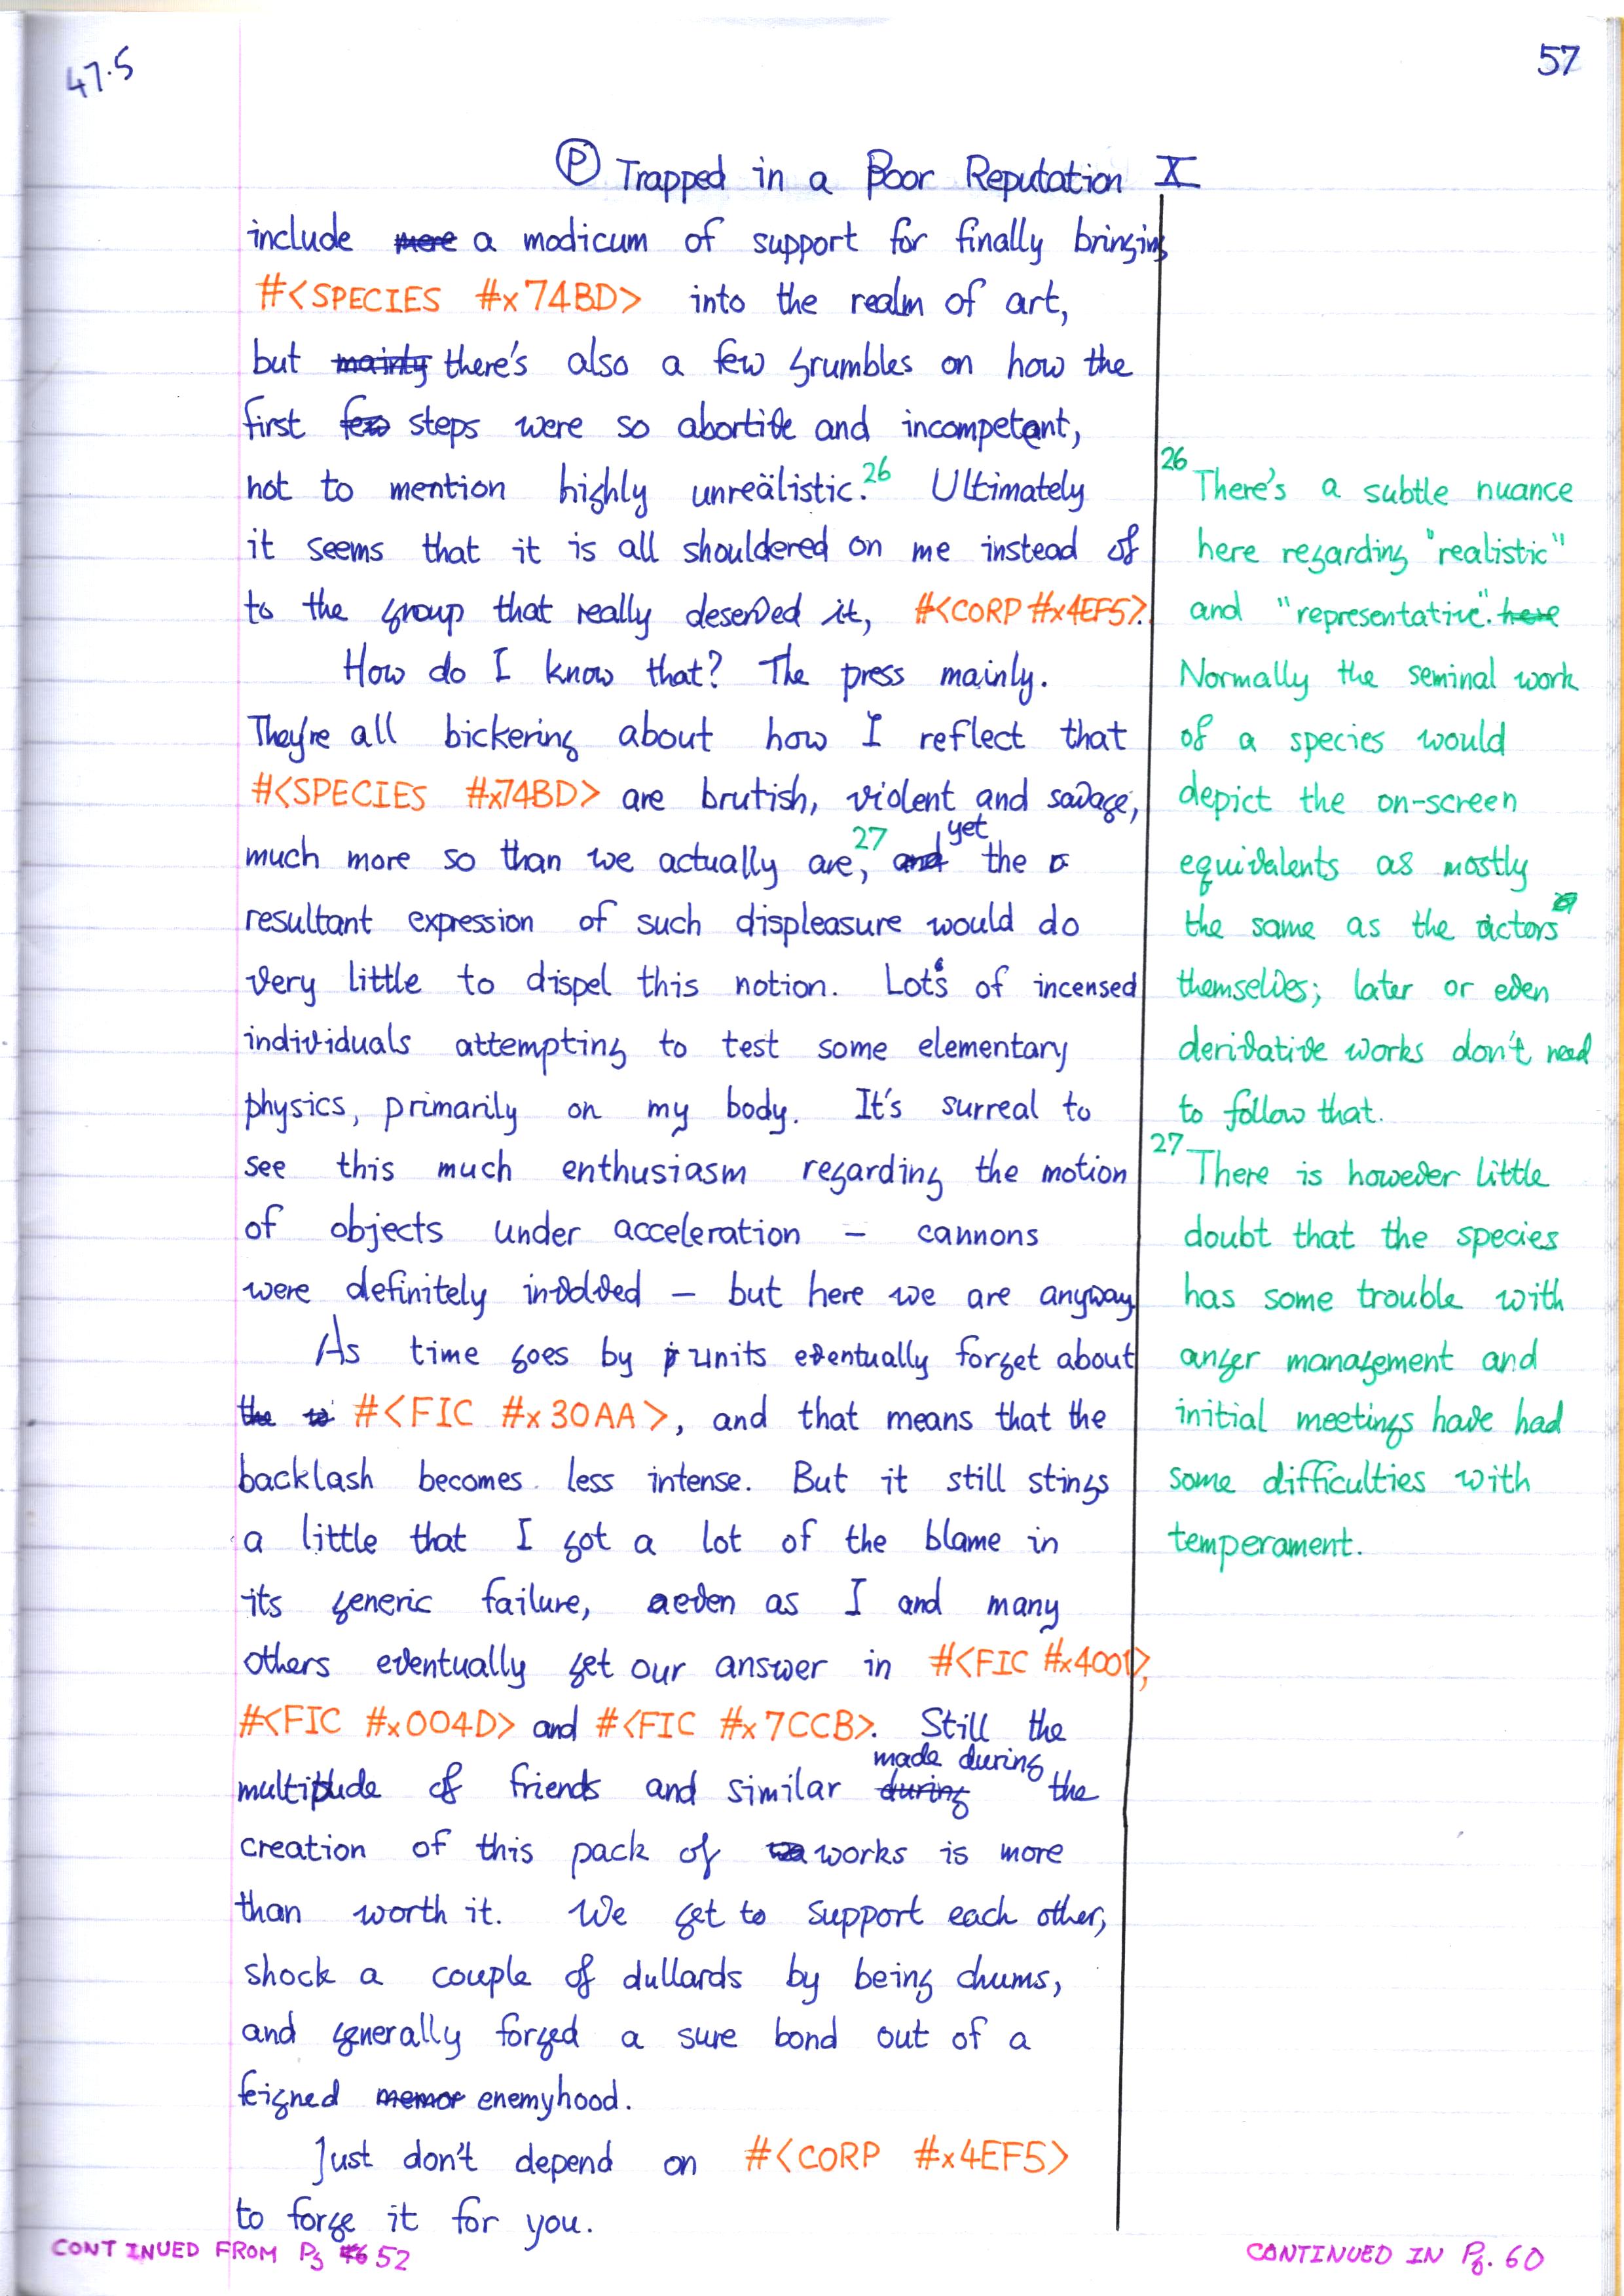 47.5
57
Ⓟ Trapped in a Poor Reputation X
include mere a modicum of support for finally bringing
#<SPECIES #x74BD> into the realm of art,
but mainly there's also a few grumbles on how the
first few steps were so abortive and incompetent,
not to mention highly unreälistic.26 Ultimately
it seems that it is all shouldered on me instead of
to the group that really deserved it, #<CORP #x4EF5>.
How do I know that? The press mainly.
They're all bickering about how I reflect that
#<SPECIES #x74BD> are brutish, violent and savage,
much more so than we actually are,27 and yet the
resultant expression of such displeasure would do
very little to dispel this notion. Lots of incensed
individuals attempting to test some elementary
physics, primarily on my body. It's surreal to
see this much enthusiasm regarding the motion
of objects under acceleration – cannons
were definitely involved – but here we are anyway.
As time goes by units eventually forget about
the #<FIC #x30AA>, and that means that the
backlash becomes less intense. But it still stings
a little that I got a lot of the blame in
its generic failure, even as I and many
others eventually get our answer in #<FIC #x4001>,
#<FIC #x004D> and #<FIC #x7CCB>. Still the
multitude of friends and similar during made during the
creation of this pack of works is more
than worth it. We get to support each other,
shock a couple of dullards by being chums,
and generally forged a sure bond out of a
feigned memor enemyhood.
Just don't depend on #<CORP #x4EF5>
to forge it for you.
26 There's a subtle nuance
here regarding "realistic"
and "representative". here
Normally the seminal work
of a species would
depict the on-screen
equivalents as mostly
the same as the actors
themselves; later or even
derivative works don't need
to follow that.
27 There is however little
doubt that the species
has some trouble with
anger management and
initial meetings have had
some difficulties with
temperament.
CONTINUED FROM Pg 52
CONTINUED IN Pg. 60